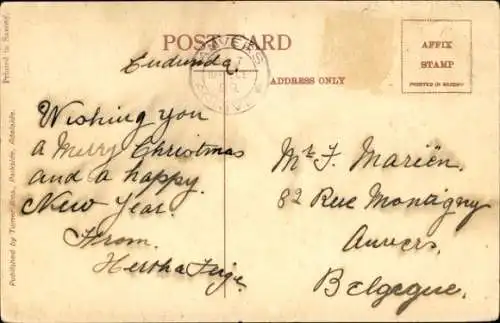 Printed in Saxony
Published by Turner Bros., Parkside, Adelaide.
POST CARD
ANVERS
ADDRESS ONLY
AFFIX
STAMP
PRINTED IN SAXONY
Eudunda
Wishing you
a Merry Christmas
and a happy
New Year.
From.
Hertha
Mr. F. Mariën.
82 Rue Montigny
Anvers.
Belgique.